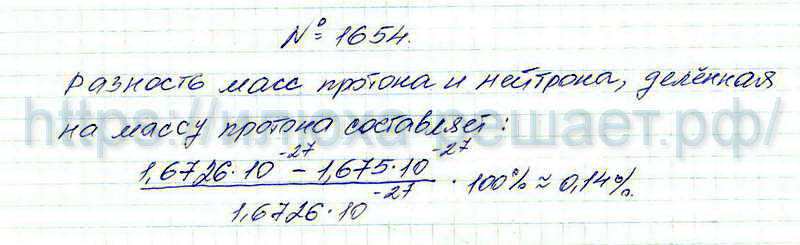 № 1654.
Разность масс протона и нейтрона, делённая
на массу протона составляет:
1,6726·10⁻²⁷ − 1,675·10⁻²⁷
1,6726·10⁻²⁷
· 100% ≈ 0,14%.